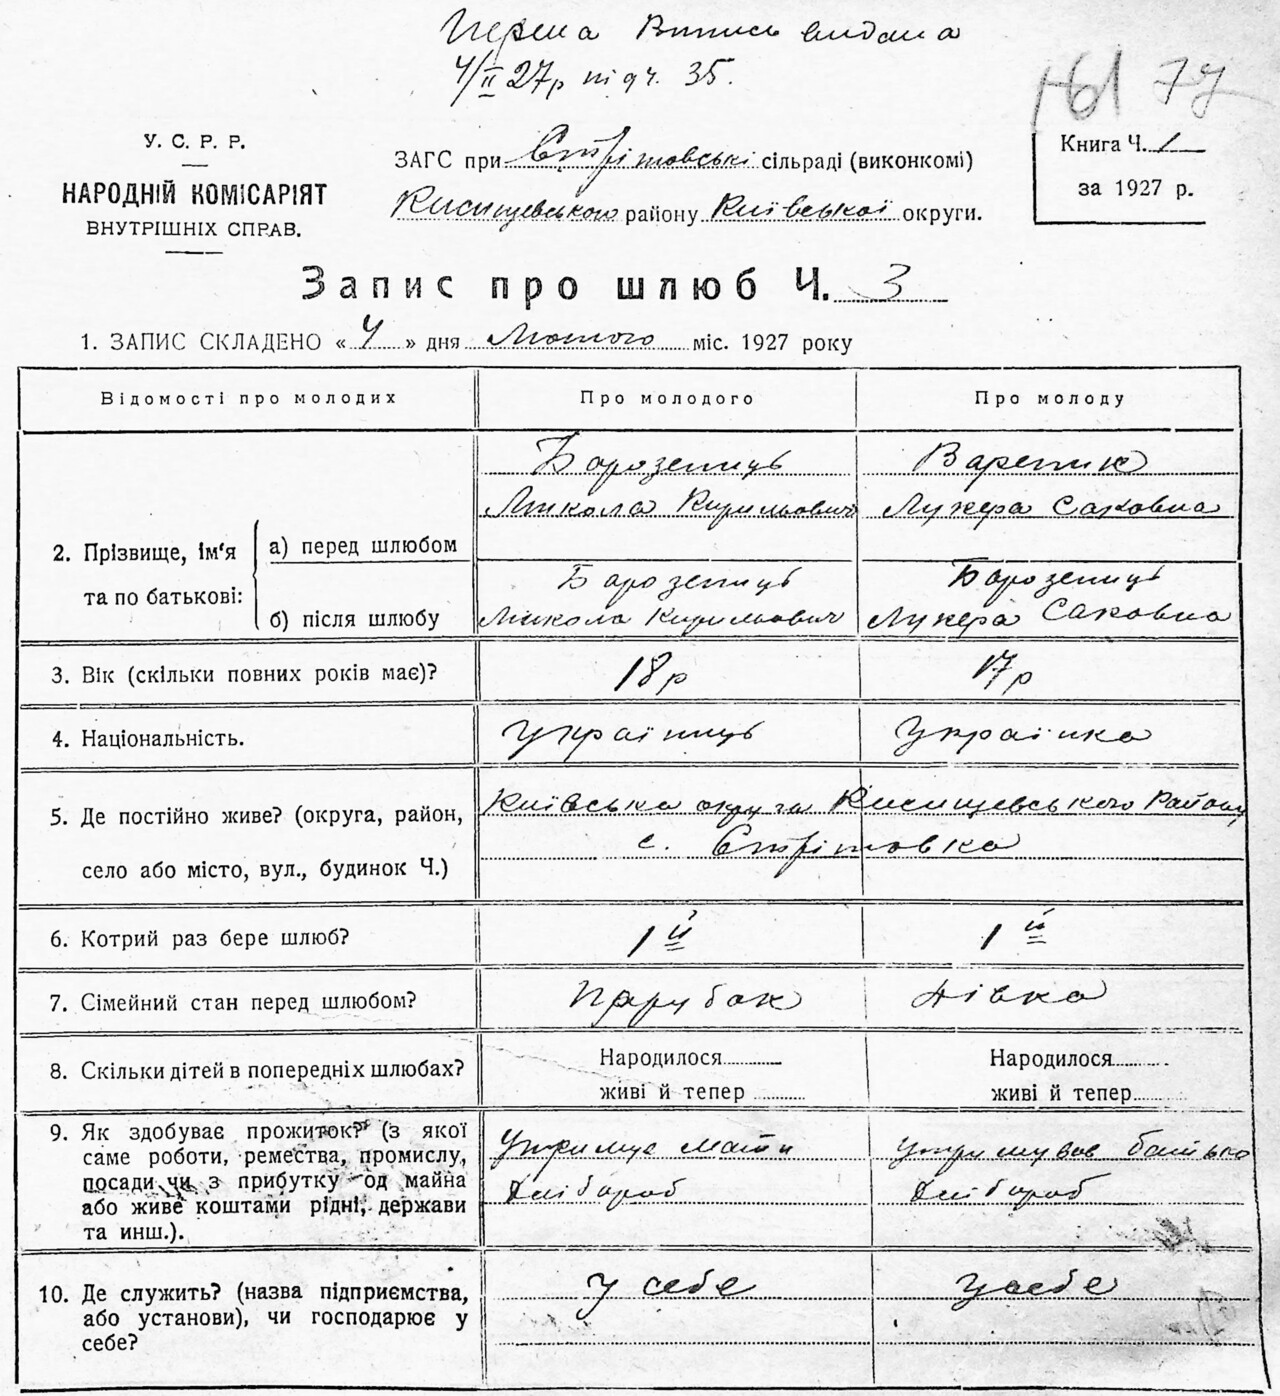 Перша Випись видана
4/II 27р під ч. 35.
77
У. С. Р. Р.
НАРОДНІЙ КОМІСАРІЯТ
ВНУТРІШНІХ СПРАВ.
ЗАГС при Стрітовські сільраді (виконкомі)
району Київської округи.
Книга Ч. 1
за 1927 р.
Запис про шлюб Ч. 3
1. ЗАПИС СКЛАДЕНО « 4 » дня Лютого міс. 1927 року
Відомості про молодих Про молодого Про молоду
2. Прізвище, ім'я та по батькові:
а) перед шлюбом
Борозенець Вареник
Микола Кирильович Лукера Саковна
б) після шлюбу
Борозенець Борозенець
Микола Кирильович Лукера Саковна
3. Вік (скільки повних років має)? 18р 17р
4. Національність. Українець Українка
5. Де постійно живе? (округа, район,
село або місто, вул., будинок Ч.)
Київська округа Району
с. Стрітовка
6. Котрий раз бере шлюб? 1й 1й
7. Сімейний стан перед шлюбом? Парубок Дівка
8. Скільки дітей в попередніх шлюбах?
Народилося Народилося
живі й тепер живі й тепер
9. Як здобуває прожиток? (з якої
саме роботи, ремества, промислу,
посади чи з прибутку од майна
або живе коштами рідні, держави
та инш.).
Утримує мати Утримував батько
Хлібороб Хлібороб
10. Де служить? (назва підприємства,
або установи), чи господарює у
себе?
У себе У себе